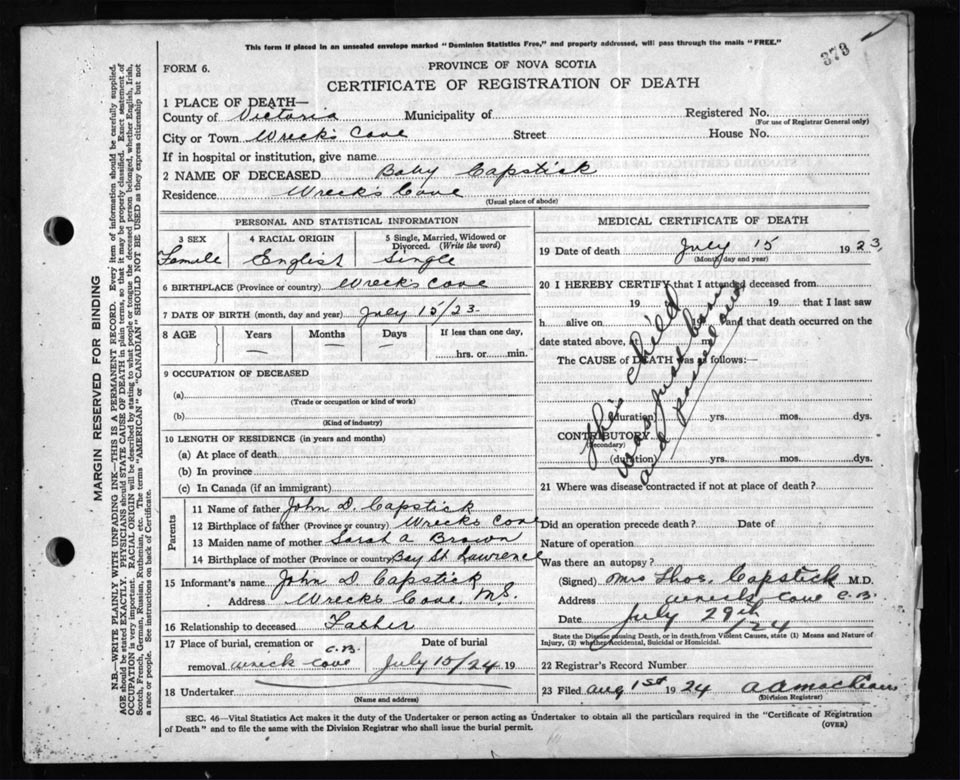 This form if placed in an unsealed envelope marked "Dominion Statistics Free," and property addressed, will pass through the mails "FREE."
373
FORM 6.
PROVINCE OF NOVA SCOTIA
CERTIFICATE OF REGISTRATION OF DEATH
1 PLACE OF DEATH—
County of Victoria Municipality of Registered No.
(For use of Registrar General only)
City or Town Wrecks Cove Street House No.
If in hospital or institution, give name
2 NAME OF DECEASED Baby Capstick
Residence Wrecks Cove
(Usual place of abode)
PERSONAL AND STATISTICAL INFORMATION
3 SEX 4 RACIAL ORIGIN 5 Single, Married, Widowed or Divorced. (Write the word)
Famile English Single
6 BIRTHPLACE (Province or country) Wrecks Cove
7 DATE OF BIRTH (month, day and year) July 15/23
8 AGE Years Months Days If less than one day,
— — — hrs. or min.
9 OCCUPATION OF DECEASED
(a)
(Trade or occupation or kind of work)
(b)
(Kind of industry)
10 LENGTH OF RESIDENCE (in years and months)
(a) At place of death
(b) In province
(c) In Canada (if an immigrant)
Parents
11 Name of father John D. Capstick
12 Birthplace of father (Province or country) Wrecks Cove
13 Maiden name of mother Sarah A Brown
14 Birthplace of mother (Province or country) Bay St Lawrence
15 Informant's name John D. Capstick
Address Wrecks Cove, N.S.
16 Relationship to deceased Father
17 Place of burial, cremation or C.B. Date of burial
removal Wreck Cove July 15/24 19
18 Undertaker
(Name and address)
MEDICAL CERTIFICATE OF DEATH
19 Date of death July 15 1923
(Month, day and year)
20 I HEREBY CERTIFY that I attended deceased from
19 19 that I last saw
h alive on and that death occurred on the
date stated above, at m.
The CAUSE of DEATH was as follows:—
This Child
was just born
and passed away
(duration) yrs. mos. dys.
CONTRIBUTORY
(Secondary)
(duration) yrs. mos. dys.
21 Where was disease contracted if not at place of death?
Did an operation precede death? Date of
Nature of operation
Was there an autopsy?
(Signed) Mrs Thos. Capstick M.D.
Address Wreck Cove C.B.
Date July 29th/24
State the Disease causing Death, or in death, from Violent Causes, state (1) Means and Nature of
Injury, (2) whether Accidental, Suicidal or Homicidal.
22 Registrar's Record Number
23 Filed Aug 1st 1924
(Division Registrar)
SEC. 46—Vital Statistics Act makes it the duty of the Undertaker or person acting as Undertaker to obtain all the particulars required in the "Certificate of Registration
of Death" and to file the same with the Division Registrar who shall issue the burial permit.
(OVER)
MARGIN RESERVED FOR BINDING
N.B.—WRITE PLAINLY WITH UNFADING INK—THIS IS A PERMANENT RECORD. Every item of information should be carefully supplied.
AGE should be stated EXACTLY. PHYSICIANS should STATE CAUSE OF DEATH in plain terms, so that it may be properly classified. Exact statement of
OCCUPATION is very important. RACIAL ORIGIN will be described by stating to what people or tongue the deceased person belonged, whether English, Irish,
Scotch, French, German, Russian, Ruthenian, etc. The terms "AMERICAN" or "CANADIAN" SHOULD NOT BE USED as they express citizenship but not
a race or people. See instructions on back of Certificate.